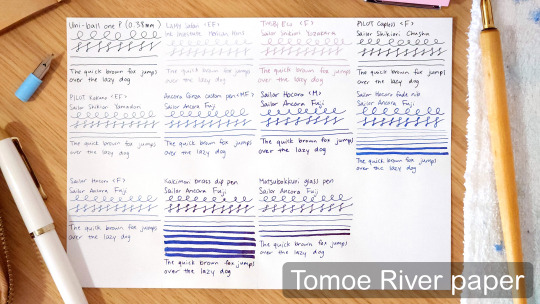 Uni-ball one P (0.38mm)
The quick brown fox jumps
over the lazy dog
Lamy Safari <EF>
The quick brown fox jumps
over the lazy dog
TWSBI Eco <F>
Sailor
The quick brown fox jumps
over the lazy dog
PILOT Capless <F>
Sailor Shikiori Chushu
The quick brown fox jumps
over the lazy dog
PILOT Kakuno <EF>
Sailor Shikiori Yamadori
The quick brown fox jumps
over the lazy dog
Ancora Ginza custom pen <MF>
Sailor Ancora Fuji
The quick brown fox jumps
over the lazy dog
Sailor Hocoro <M>
Sailor Ancora Fuji
The quick brown fox jumps
over the lazy dog
Sailor Hocoro fude nib
Sailor Ancora Fuji
The quick brown fox jumps
over the lazy dog
Sailor Hocoro <F>
Sailor Ancora Fuji
The quick brown fox jumps
over the lazy dog
Kakimori brass dip pen
Sailor Ancora Fuji
The quick brown fox jumps
over the lazy dog
Matsubokkuri glass pen
Sailor Ancora Fuji
The quick brown fox jumps
over the lazy dog
Tomoe River paper